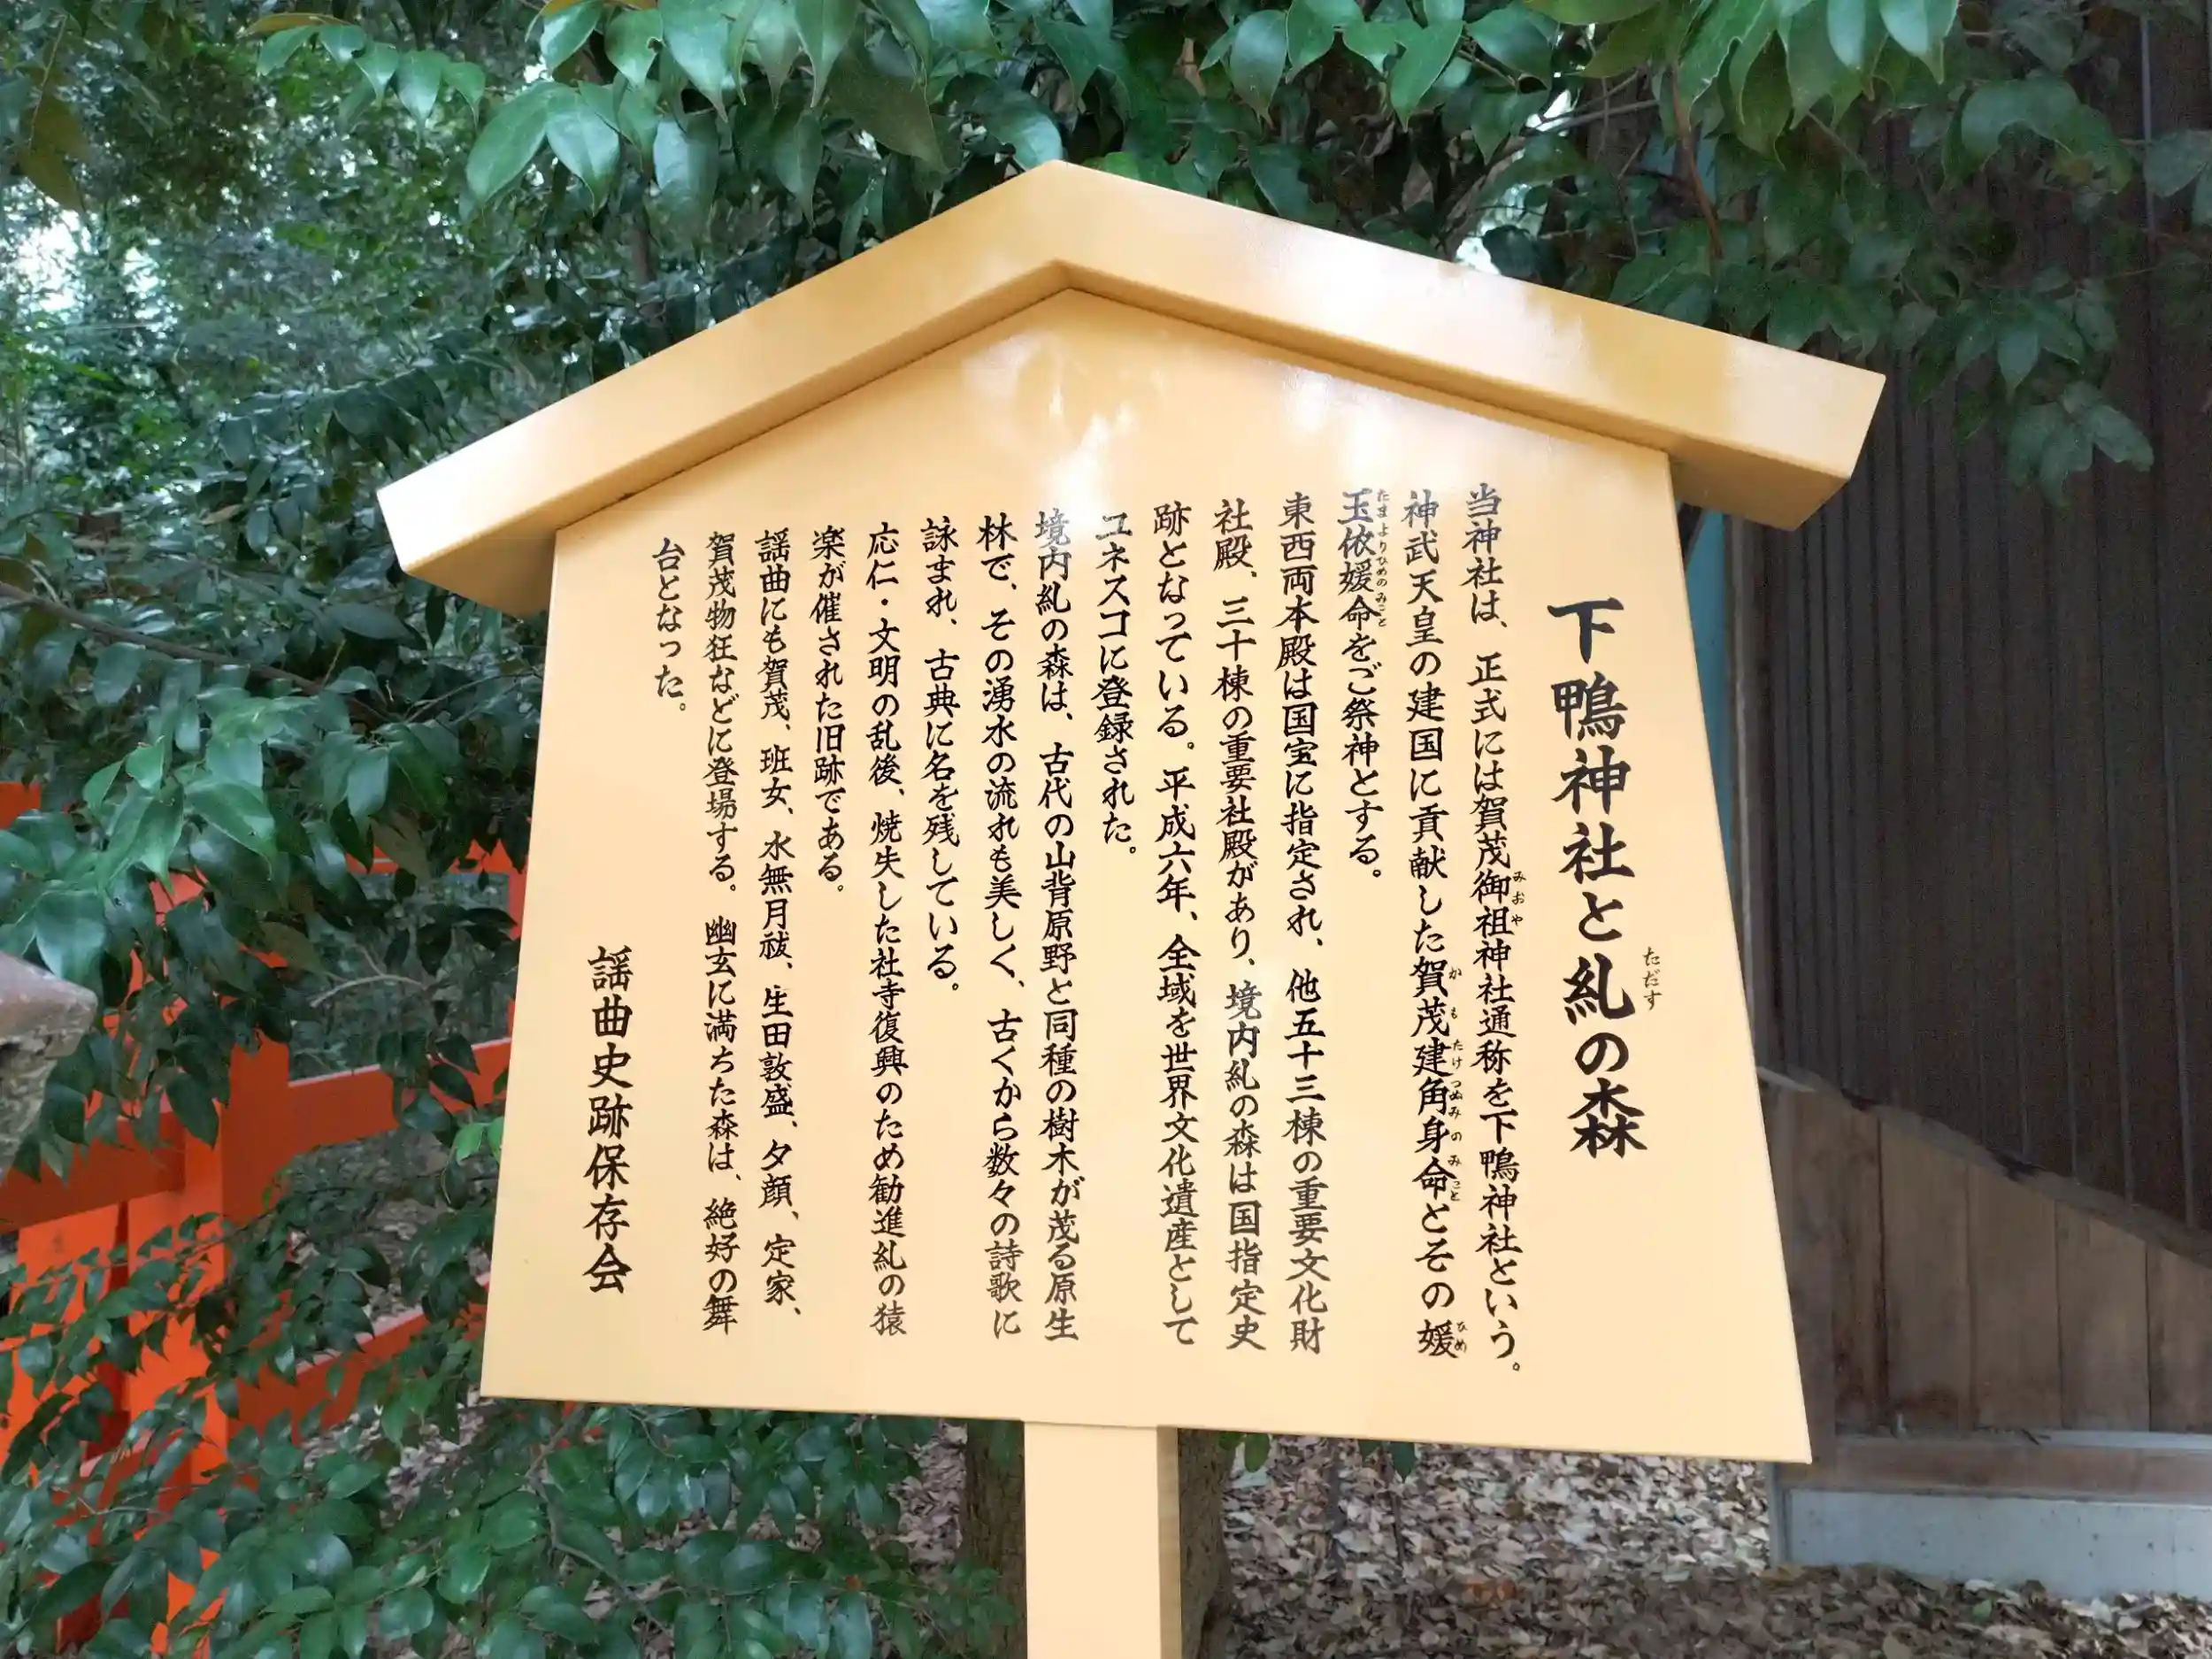 下鴨神社と糺の森
ただす
当神社は、正式には賀茂御祖神社通称を下鴨神社という。
みおや
神武天皇の建国に貢献した賀茂建角身命とその媛
かもたけつぬみのみこと
ひめ
玉依媛命をご祭神とする。
たまよりひめのみこと
東西両本殿は国宝に指定され、他五十三棟の重要文化財
社殿、三十棟の重要社殿があり、境内糺の森は国指定史
跡となっている。平成六年、全域を世界文化遺産として
ユネスコに登録された。
境内糺の森は、古代の山背原野と同種の樹木が茂る原生
林で、その湧水の流れも美しく、古くから数々の詩歌に
詠まれ、古典に名を残している。
応仁・文明の乱後、焼失した社寺復興のため勧進糺の猿
楽が催された旧跡である。
謡曲にも賀茂、班女、水無月祓、生田敦盛、夕顔、定家、
賀茂物狂などに登場する。幽玄に満ちた森は、絶好の舞
台となった。
謡曲史跡保存会